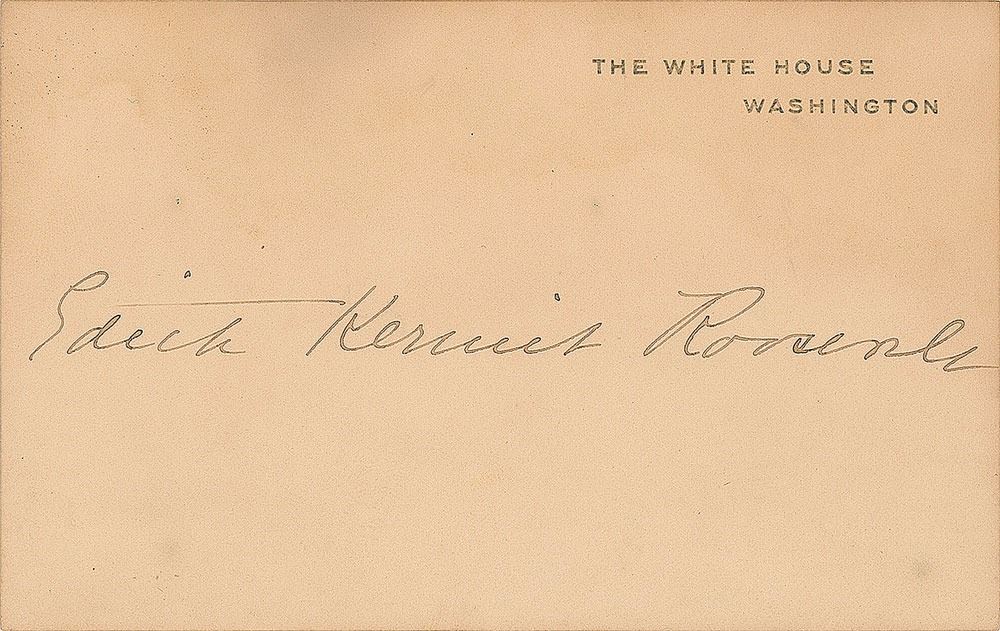 THE WHITE HOUSE
WASHINGTON
Edith Kermit Roosevelt